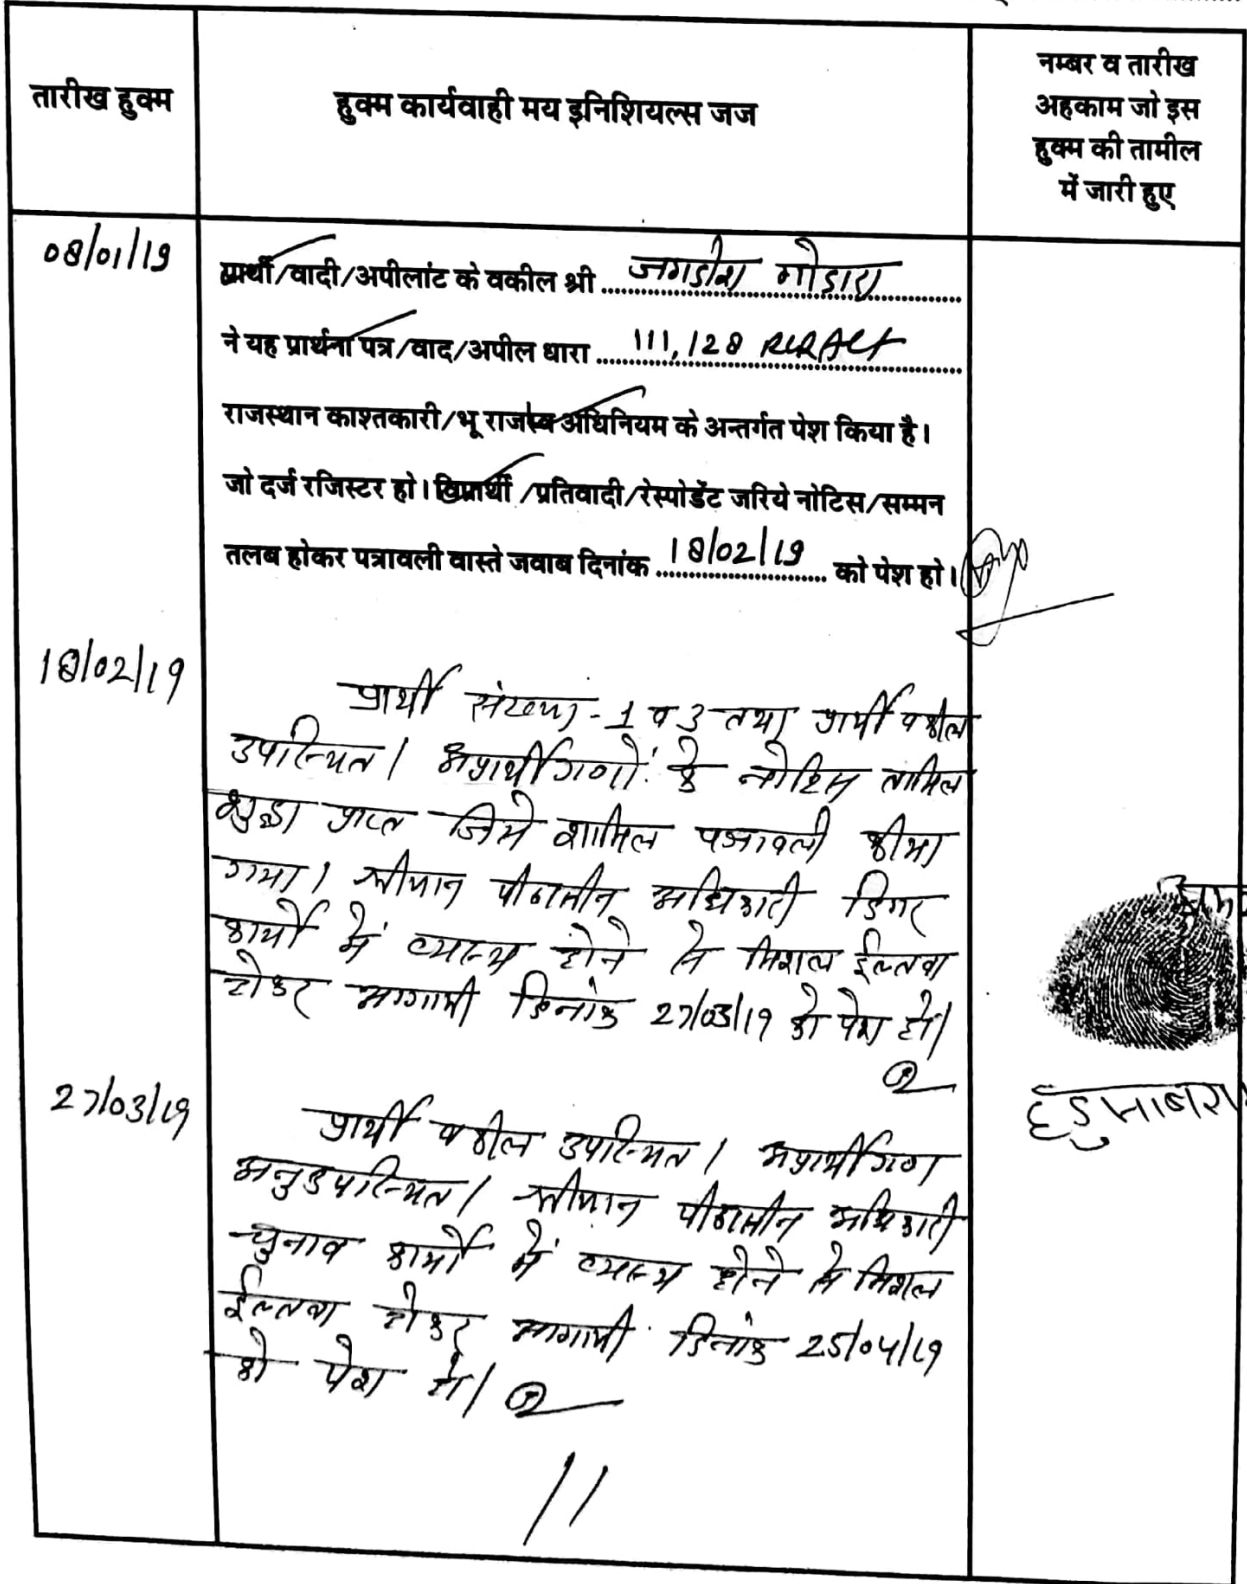 तारीख हुक्म
हुक्म कार्यवाही मय इनिशियल्स जज
नम्बर व तारीख
अहकाम जो इस
हुक्म की तामील
में जारी हुए
08/01/19
प्रार्थी/वादी/अपीलांट के वकील श्री जगदीश गोदारा
ने यह प्रार्थना पत्र/वाद/अपील धारा 111, 128 RLRAct
राजस्थान काश्तकारी/भू राजस्व अधिनियम के अन्तर्गत पेश किया है।
जो दर्ज रजिस्टर हो। विप्रार्थी/प्रतिवादी/रेस्पोडेंट जरिये नोटिस/सम्मन
तलब होकर पत्रावली वास्ते जवाब दिनांक 18/02/19 को पेश हो।
18/02/19
प्रार्थी संख्या - 1 व 3 तथा प्रार्थी वकील
उपस्थित। अप्रार्थीगणों के नोटिस तामिल
शुदा प्राप्त जिसे शामिल पत्रावली कीया
गया। श्रीमान पीठासीन अधिकारी दिगर
कार्यो में व्यस्थ होने से मिशल ईल्तवा
होकर आगामी दिनांक 27/03/19 को पेश हो।
27/03/19
प्रार्थी वकील उपस्थित। अप्रार्थीगण
अनुउपस्थित। श्रीमान पीठासीन अधिकारी
चुनाव कार्यो में व्यस्थ होने से मिशल
ईल्तवा होकर आगामी दिनांक 25/04/19
को पेश हो।